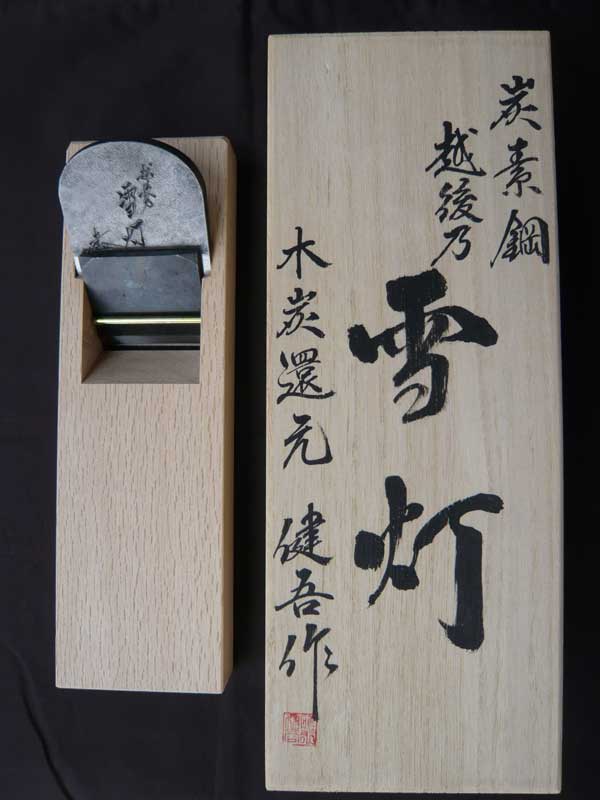 炭素鋼
越後乃
雪灯
木炭還元 健吾作
雪灯